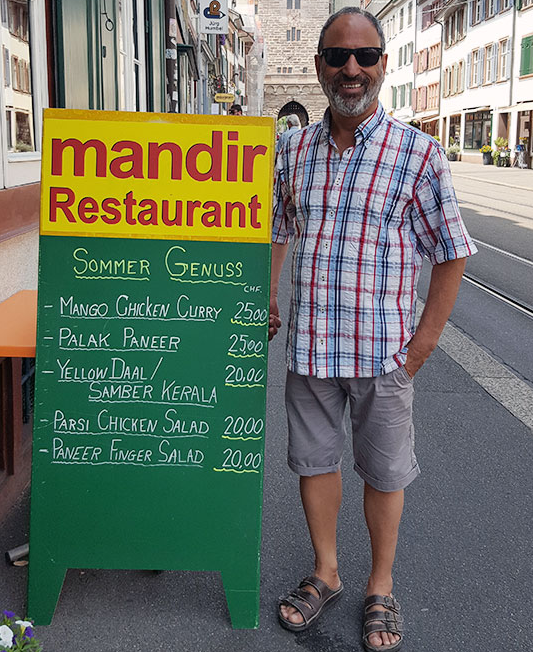 Jürg
mandir
Restaurant
SOMMER GENUSS
CHF.
- MANGO CHICKEN CURRY 25.00
- PALAK PANEER 25,00
- YELLOW DAAL/
SAMBER KERALA 20,00
PARSI CHICKEN SALAD 20,00
- PANEER FINGER SALAD 20,00